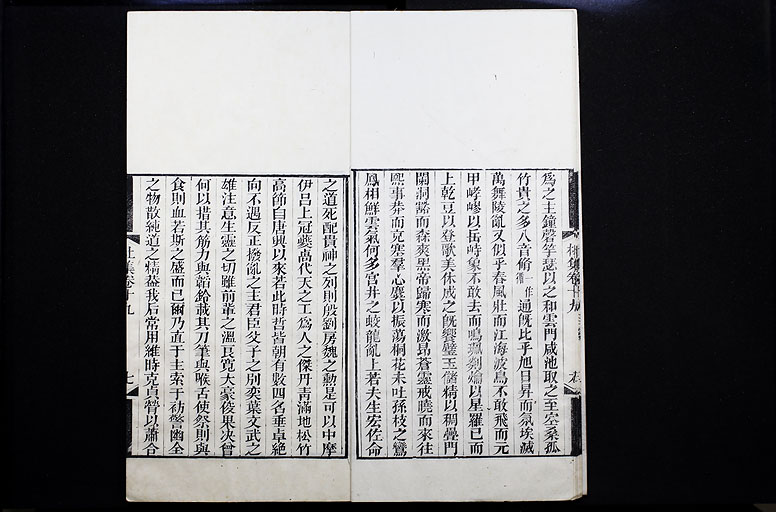 為之主鐘磬竽瑟以之和雲門咸池取之至空桑孤
竹貴之多八音脩一作循通旣比乎旭日昇而氛埃滅
萬舞陵亂又似乎春風壯而江海波鳥不敢飛而元
甲崢嶸以岳峙象不敢去而鳴珮剡爚以星羅已而
上乾豆以登歌美休成之旣饗璧玉儲精以稠疊門
闌洞豁而森爽黑帝歸寒而激昂蒼靈戒曉而來往
熙事莽而充塞羣心㦿以振蕩桐花未吐孫枝之鸞
鳳相鮮雲氣何多宮井之蛟龍亂上若夫生宏佐命
之道死配貴神之列則殷劉房魏之勳是可以中摩
伊呂上冠夔卨代天之工為人之傑丹青滿地松竹
高節自唐興以來若此時哲皆朝有數四名垂卓絕
向不遇反正撥亂之主君臣父子之別奕葉文武之
雄注意生靈之切雖前輩之溫良寛大豪俊果决曾
何以措其筋力與韜鈐載其刀筆與喉舌使祭則與
食則血若斯之盛而已爾乃直于主索于祊警幽全
之物散純道之精蓋我后常用惟時克貞膋以蕭合
杜集卷十九
七